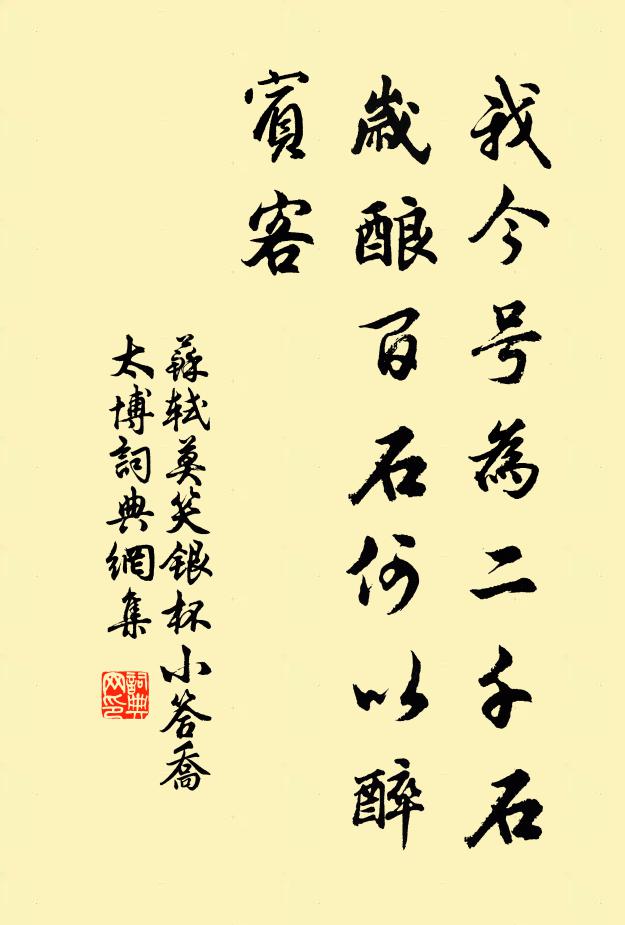 我今号為二千石
歲酿百石何以醉
賓客
蘇軾莫笑銀杯小答喬
太博詞典網集
詞典网印